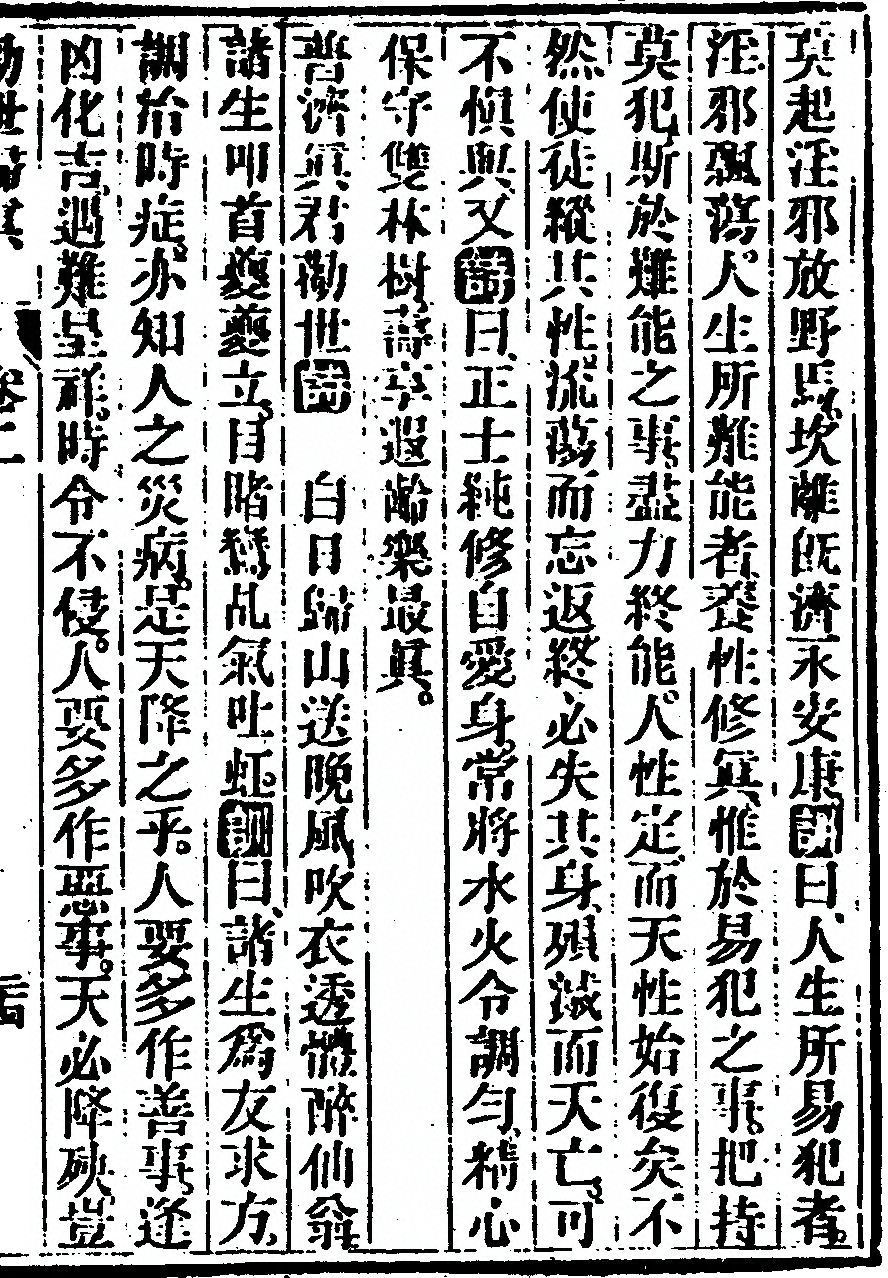 莫起淫邪放野馬坎離旣濟永安康訓曰人生所易犯者
淫邪飄蕩人生所難能者養性修眞惟於易犯之事把持
莫犯斯於難能之事盡力終能人性定而天性始復矣不
然使徒縱其性流蕩而忘返終必失其身殞滅而夭亡可
不愼與又詩曰正士純修自愛身常將水火令調勻精心
保守雙林樹壽享遐齡樂最眞
普濟眞君勸世詩　白日歸山送晚風吹衣透體醉仙翁
諸生叩首夔夔立目睹鸞乩氣吐虹訓曰諸生爲友求方
調治時症亦知人之災病是天降之乎人要多作善事逢
凶化吉遇難呈祥時令不侵人要多作惡事天必降殃豈
卷二